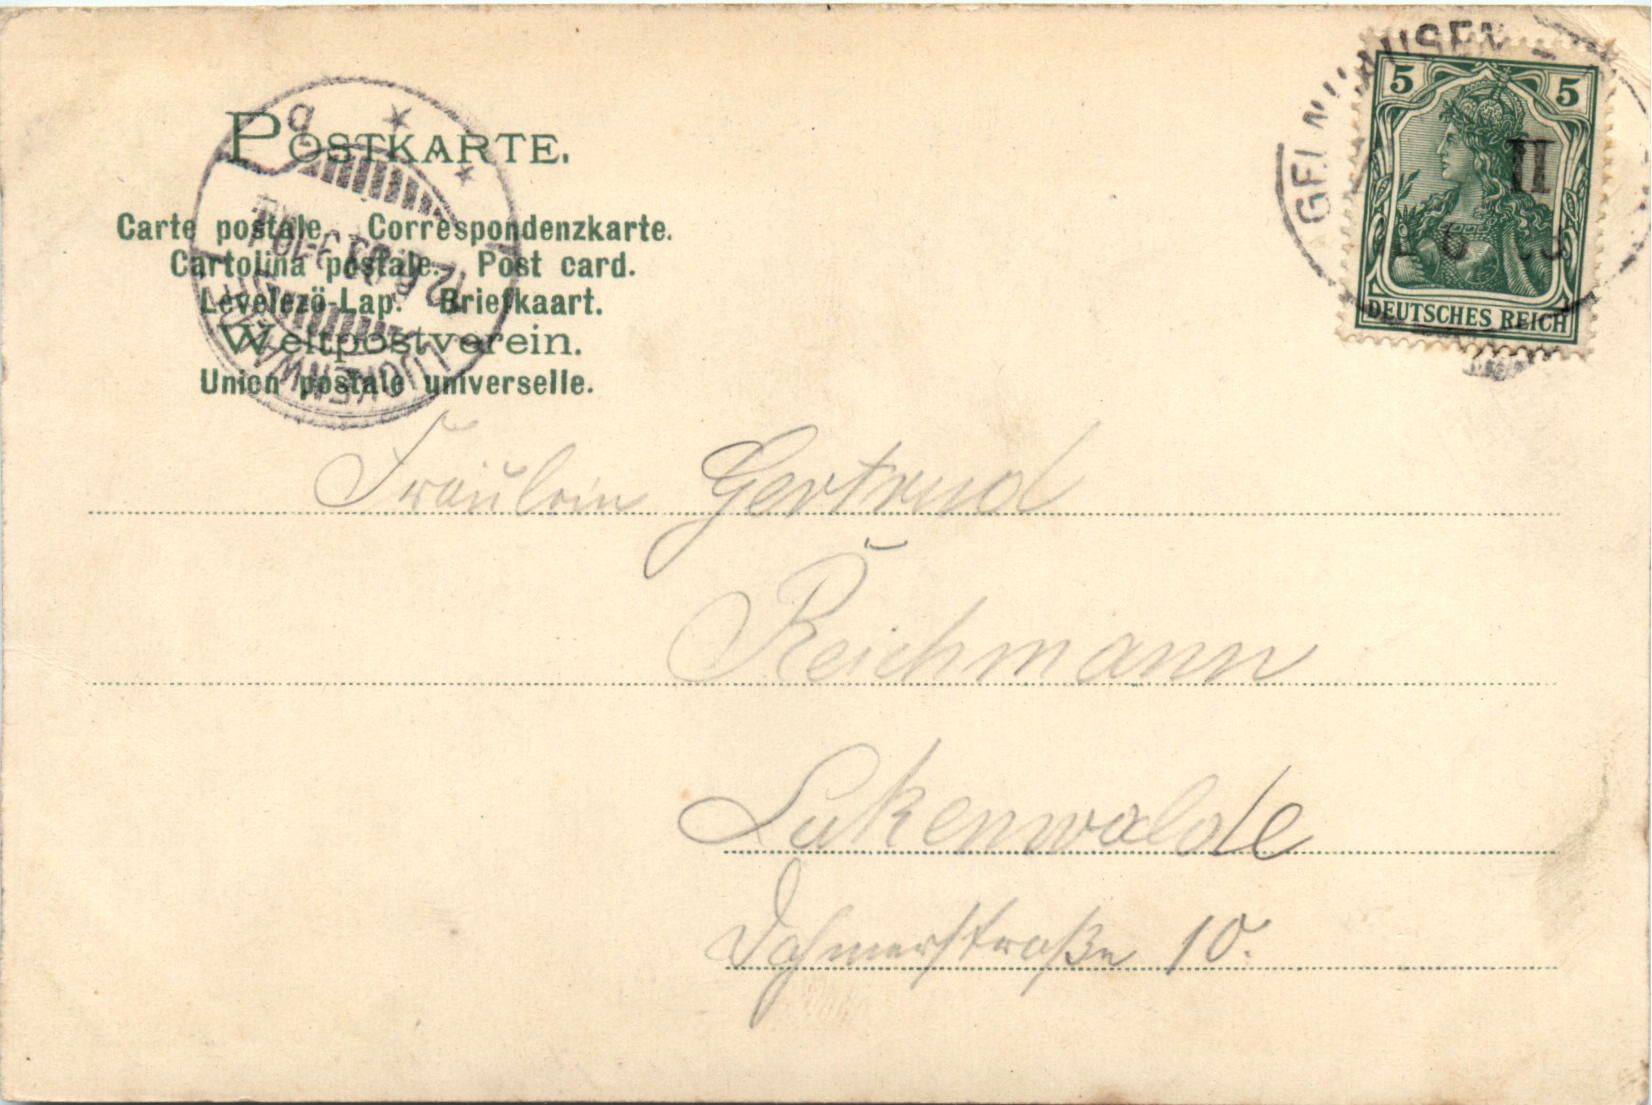 POSTKARTE.
Carte postale. Correspondenzkarte.
Cartolina postale. Post card.
Levelezö-Lap. Briefkaart.
Weltpostverein.
Union postale universelle.
5 5
DEUTSCHES REICH
GELNHAUSEN
II
LUCKENWALDE
Fräulein Gertrud
Reichmann
Lukenwalde
Dahmerstraße 10.